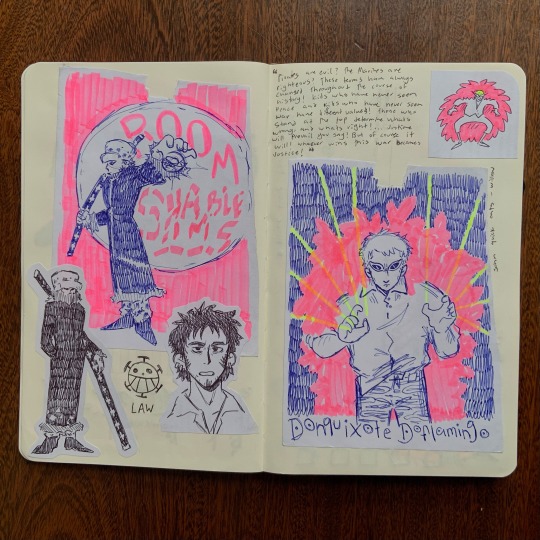 ROOM
LAW
"Pirates are evil? The Marines are
righteous? These terms have always
changed throughout the course of
history! Kids who have never seen
peace and kids who have never seen
war have different values! Those who
stand at the top determine whats
wrong and whats right! ... Justice
will prevail you say? But of course it
will! whoever wins this war becomes
Justice!"
Donquixote Doflamingo